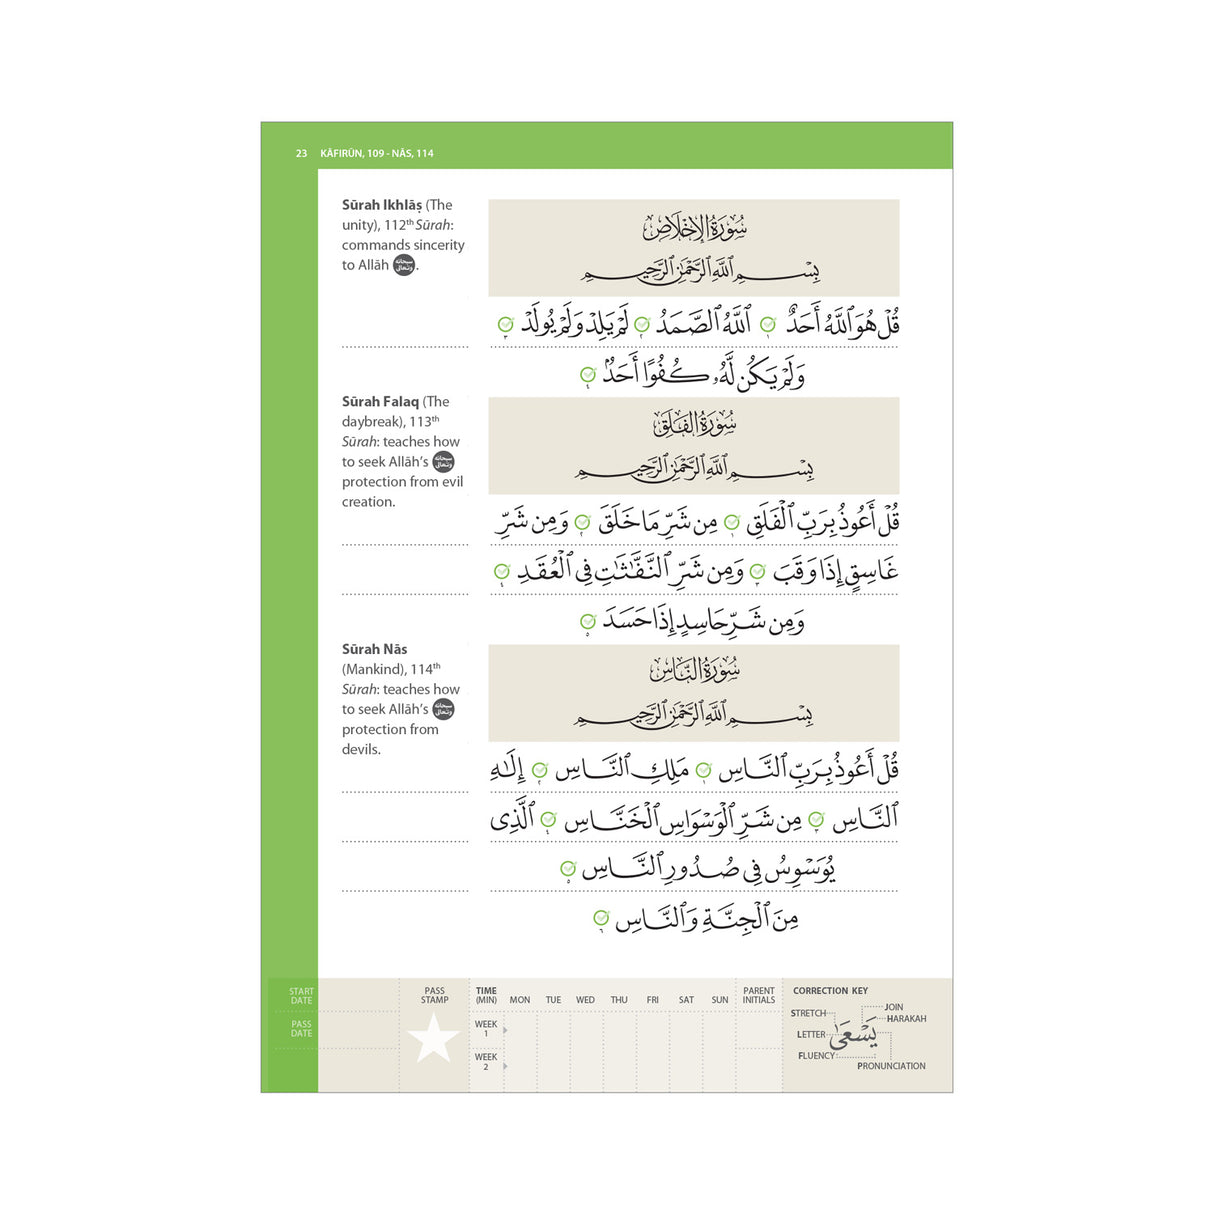 23 KĀFIRŪN, 109 - NĀS, 114
Sūrah Ikhlāṣ (The
unity), 112th Sūrah:
commands sincerity
to Allāh سبحانه وتعالى.
سُورَةُ الإِخْلَاصِ
بِسْمِ ٱللَّهِ ٱلرَّحْمَٰنِ ٱلرَّحِيمِ
قُلْ هُوَ ٱللَّهُ أَحَدٌ ١ ٱللَّهُ ٱلصَّمَدُ ٢ لَمْ يَلِدْ وَلَمْ يُولَدْ ٣
وَلَمْ يَكُن لَّهُۥ كُفُوًا أَحَدٌۢ ٤
Sūrah Falaq (The
daybreak), 113th
Sūrah: teaches how
to seek Allāh's سبحانه وتعالى
protection from evil
creation.
سُورَةُ الفَلَقِ
بِسْمِ ٱللَّهِ ٱلرَّحْمَٰنِ ٱلرَّحِيمِ
قُلْ أَعُوذُ بِرَبِّ ٱلْفَلَقِ ١ مِن شَرِّ مَا خَلَقَ ٢ وَمِن شَرِّ
غَاسِقٍ إِذَا وَقَبَ ٣ وَمِن شَرِّ ٱلنَّفَّٰثَٰتِ فِى ٱلْعُقَدِ ٤
وَمِن شَرِّ حَاسِدٍ إِذَا حَسَدَ ٥
Sūrah Nās
(Mankind), 114th
Sūrah: teaches how
to seek Allāh's سبحانه وتعالى
protection from
devils.
سُورَةُ النَّاسِ
بِسْمِ ٱللَّهِ ٱلرَّحْمَٰنِ ٱلرَّحِيمِ
قُلْ أَعُوذُ بِرَبِّ ٱلنَّاسِ ١ مَلِكِ ٱلنَّاسِ ٢ إِلَٰهِ
ٱلنَّاسِ ٣ مِن شَرِّ ٱلْوَسْوَاسِ ٱلْخَنَّاسِ ٤ ٱلَّذِى
يُوَسْوِسُ فِى صُدُورِ ٱلنَّاسِ ٥
مِنَ ٱلْجِنَّةِ وَٱلنَّاسِ ٦
START
DATE
PASS
DATE
PASS
STAMP
TIME
(MIN) MON TUE WED THU FRI SAT SUN
WEEK
1
WEEK
2
PARENT
INITIALS
CORRECTION KEY
STRETCH
LETTER
FLUENCY
يَسْعَىٰ
JOIN
HARAKAH
PRONUNCIATION